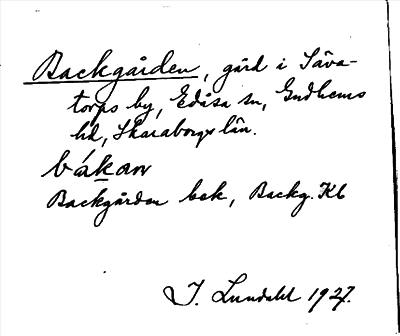 Backgården, gård i Säva-
torps by, Edåsa sn, Gudhems
hd, Skaraborgs län.
bákan
Backgården bek, Backg. Kb
J. Lundahl 1927.